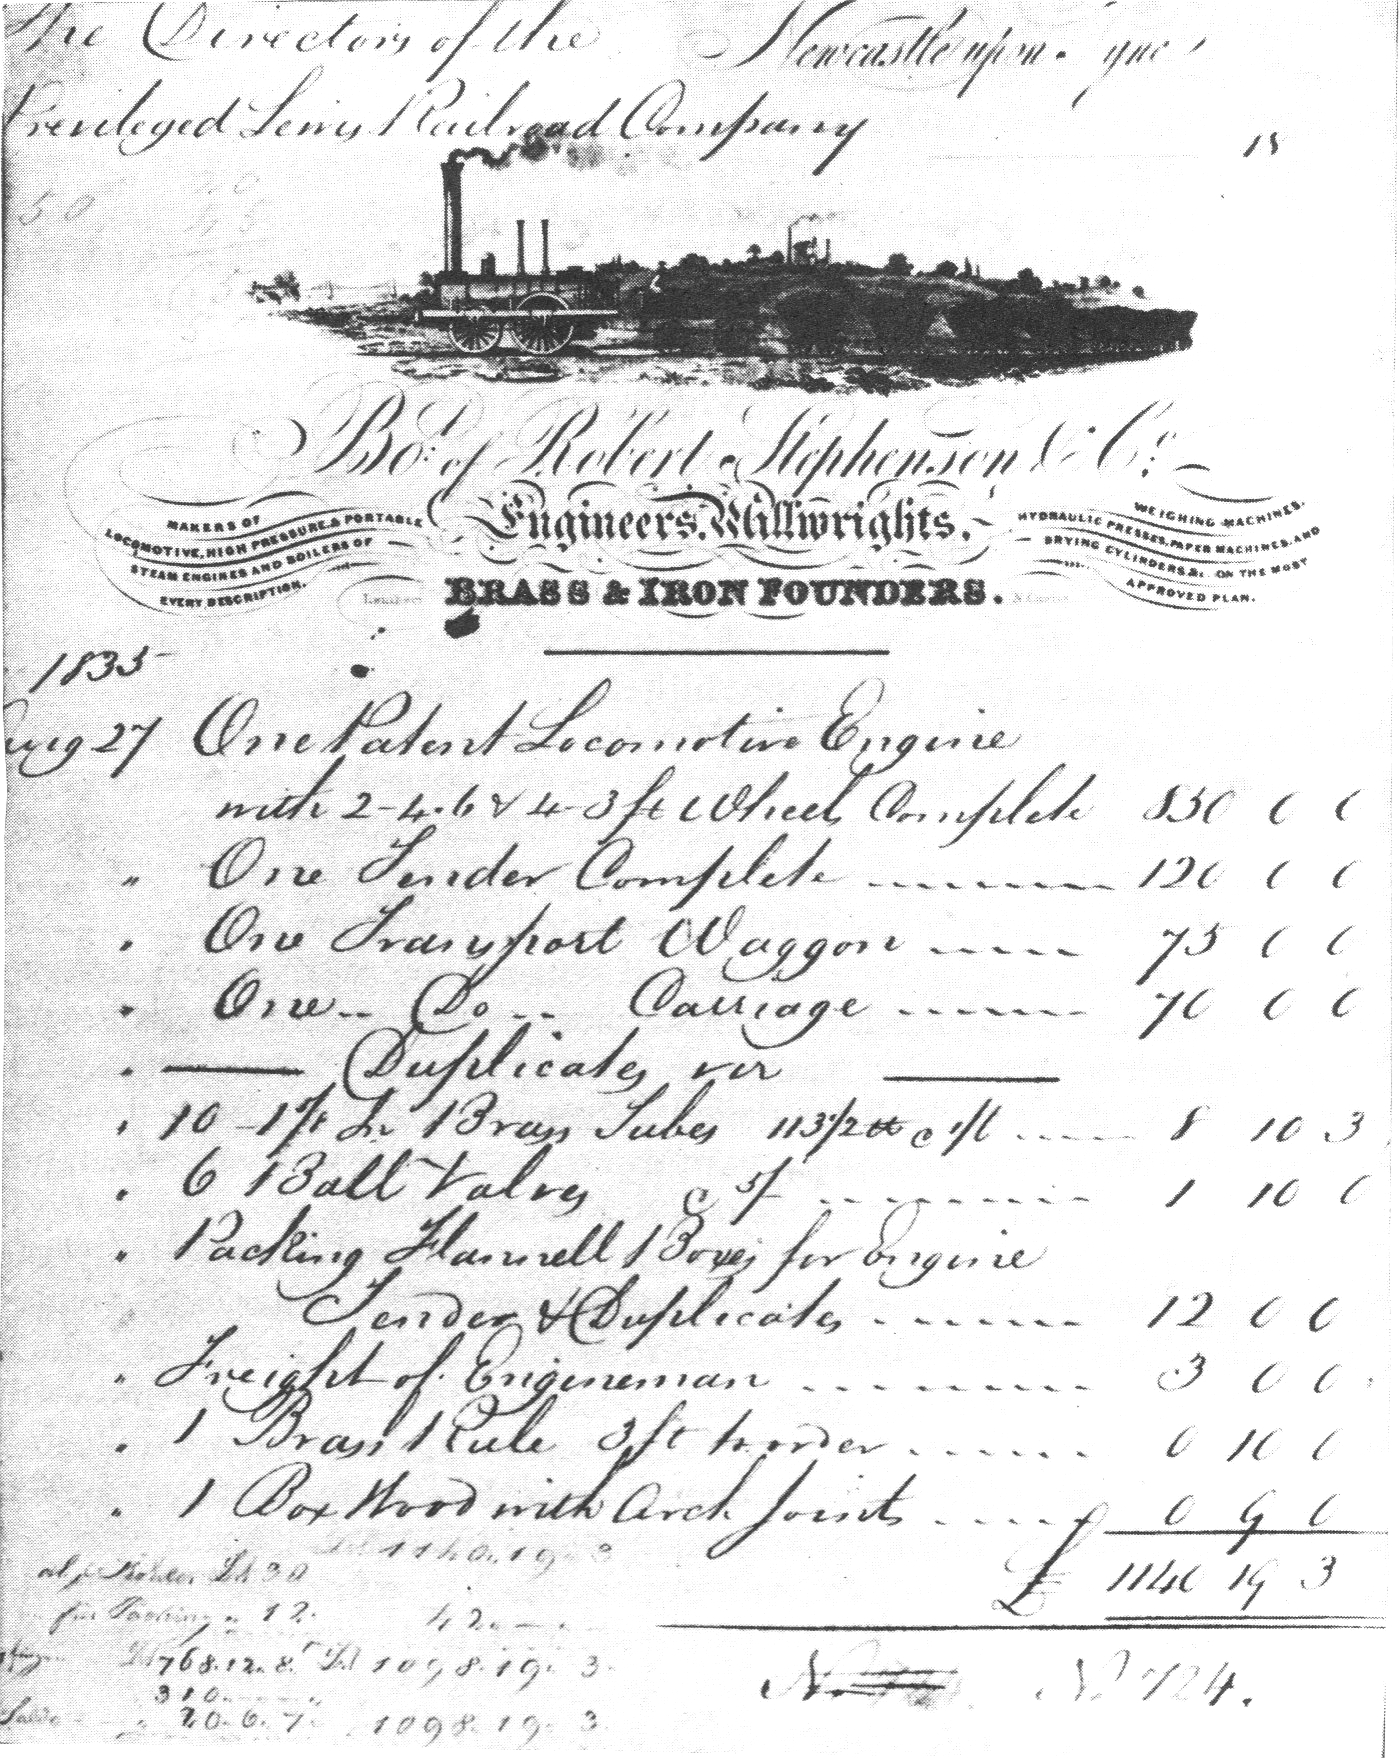 The Directors of the
Newcastle upon Tyne
Previleged Lewis Railroad Company
18
50
Bot. of Robert Stephenson & Co.
Engineers, Millwrights,
BRASS & IRON FOUNDERS.
MAKERS OF
LOCOMOTIVE, HIGH PRESSURE, & PORTABLE
STEAM ENGINES AND BOILERS OF
EVERY DESCRIPTION.
WEIGHING MACHINES,
HYDRAULIC PRESSES, PAPER MACHINES, AND
DRYING CYLINDERS, &c. ON THE MOST
APPROVED PLAN.
1835
Aug 27 One Patent Locomotive Engine
with 2-4.6 & 4-3 ft Wheels Complete 850 0 0
" One Tender Complete 120 0 0
" One Transport Waggon 75 0 0
" One Do Carriage 70 0 0
" Duplicates viz
" 10 - Brass Tubes 113 1/2 lb @ 1/6 8 10 3
" 6 Ball Valves @ 5/- 1 10 0
" Packing Flannell Boxes for Engine
Tender & Duplicates 12 0 0
" Freight of Engineman 3 0 0
" 1 Brass Rule 3 ft to order 0 10 0
" 1 Box Wood with Arch Joints 0 9 0
£ 1140 19 3
1140. 19. 3
30
für Packing " 12. 42.
768. 12. 8. 1098. 19. 3.
310.
Saldo 20. 6. 7. 1098. 19. 3.
No 724.